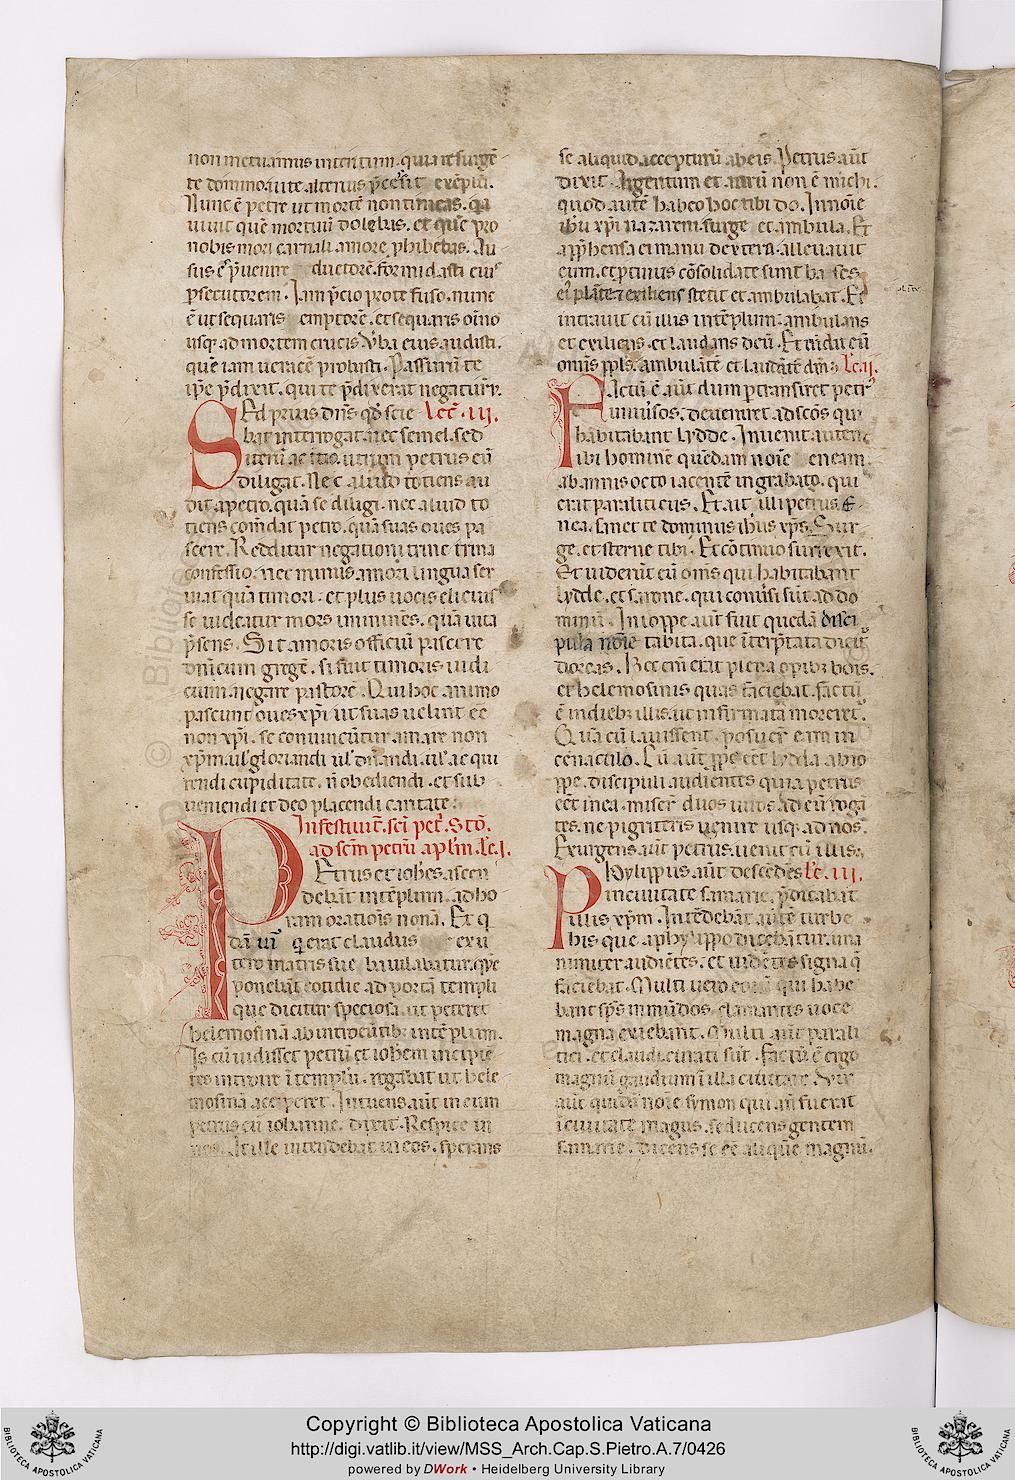 non metuamus interitum. quia resurgē
te domino. uite alterius p̄cessit exēplū.
Nunc ē petre ut mortē non timeas. q̄a
uiuit quē mortuū dolebas. et quē pro
nobis mori carnali amore phibebas. Au
sus es p̄uenire ductorē. formidasti eius
ꝑsecutorem. Iam p̄cio pro te fuso. nunc
ē ut sequaris emptorē. et sequaris oīno
usqꝫ ad mortem crucis. Uerba eius audisti.
quē iam ueracē probasti. Passurū te
ip̄e p̄dixit. qui te p̄dixerat negaturū.
Sed prius dn̄s qđ scie Lec̄. iij.
bat interrogat. nec semel. sed
iterū ac tertio. utrum petrus eū
diligat. Nec aliud totiens au
dit a petro. quā se diligi. nec aliud to
tiens com̄dat petro. quā suas oues pa
scere. Redditur negationi trine trina
confessio. nec minus amori lingua ser
uiat quā timori. et plus uocis elicuisse
se uideatur mors imminēs. quā uita
p̄sens. Sit amoris officiū pascere
dn̄icum gregē. si fuit timoris iudi
cium. negare pastorē. Qui hoc animo
pascunt oues xp̄i ut suas uelint eē
non xp̄i. se conuincūtur amare non
xp̄m. uł gloriandi uł dn̄andi. uł acqui
rendi cupiditate. n̄ obediendi. et sub
ueniendi et deo placendi caritate.
In festiuit̄. sc̄i pet̄. Stō.
ad sc̄m petrū apl̄m. Lc̄. I.
Petrus et ioh̄es. ascen
debāt in tēplum. ad ho
ram orationis nonā. Et q̄
dā uir q̄ erat claudus ex u
tero matris sue baiulabatur. quē
ponebāt cotidie ad portā templi
que dicitur speciosa. ut peteret
helemosinā ab introeūtibꝫ in tēplum.
Is cū uidisset petrū et ioh̄em incipiē
tes introire ī templū. rogabat ut hele
mosinā acciperet. Intuens aūt in eum
petrus cū iohanne. dixit. Respice in
nos. At ille intendebat in eos. sperans
se aliquid accepturū ab eis. Petrus aūt
dixit. Argentum et aurū non ē michi.
quod autē habeo hoc tibi do. In noīe
ih̄u xp̄i nazareni. surge et ambula. Et
app̄hensa ei manu dextera. alleuauit
eum. et protinus cōsolidate sunt bases
eiꝰ plāte. ⁊ exiliens stetit et ambulabat. Et
intrauit cū illis in tēplum. ambulans
et exiliens. et laudans deū. Et uidit eū
omīs ppl̄s. ambulātē et laudātē dm̄. Lc̄. ij.
Factū ē aūt dum ꝑtransiret petrꝰ
uniuersos. deueniret ad sc̄os qui
habitabant lydde. Inuenit autem
ibi hominē quēdam noīe eneam.
ab annis octo iacentē in grabato. qui
erat paraliticus. Et ait illi petrus. E
nea. sanet te dominus ih̄us xp̄s. Sur
ge. et sterne tibi. Et cōtinuo surrexit.
Et uiderūt eū om̄s qui habitabant
lydde. et sarone. qui conuersi sūt ad do
minū. In ioppe aūt fuit quedā disci
pula noīe tabita. que īterp̄tata dicitꝰ
dorcas. Hec eīm erat plena operibꝫ bonis.
et helemosinis quas faciebat. factū
ē in diebꝫ illis. ut infirmata moreretꝰ.
Quā cū lauissent. posuerūt eam in
cenaculo. Cū aūt ꝓpe eēt lydda ab io
ppe. discipuli audientes quia petrus
eēt in ea. miserūt duos uiros ad eū roga
tes. ne pigriteris uenire usqꝫ ad nos.
Exurgens aūt petrus. uenit cū illis.
Phylippus aūt descēdēs Lc̄. iii.
in ciuitate samarie. p̄dicabat
illis xp̄m. Intēdebāt autē turbe
his que a phylippo dicebātur. una
nimiter audiētes. et uidētes signa q̄
faciebat. Multi uero eorum qui habe
bant sp̄s inmūdos. clamantes uoce
magna exiebant. Multi aūt parali
tici. et claudi. curati sūt. Factū ē ergo
magnū gaudium ī illa ciuitate. Uir
aūt quidā noīe symon qui an̄ fuerat
ī ciuitate magus. seducens gentem
samarie. dicens se eē aliquē magnū.
Copyright © Biblioteca Apostolica Vaticana
http://digi.vatlib.it/view/MSS_Arch.Cap.S.Pietro.A.7/0426
powered by DWork • Heidelberg University Library
BIBLIOTECA APOSTOLICA VATICANA
BIBLIOTECA APOSTOLICA VATICANA